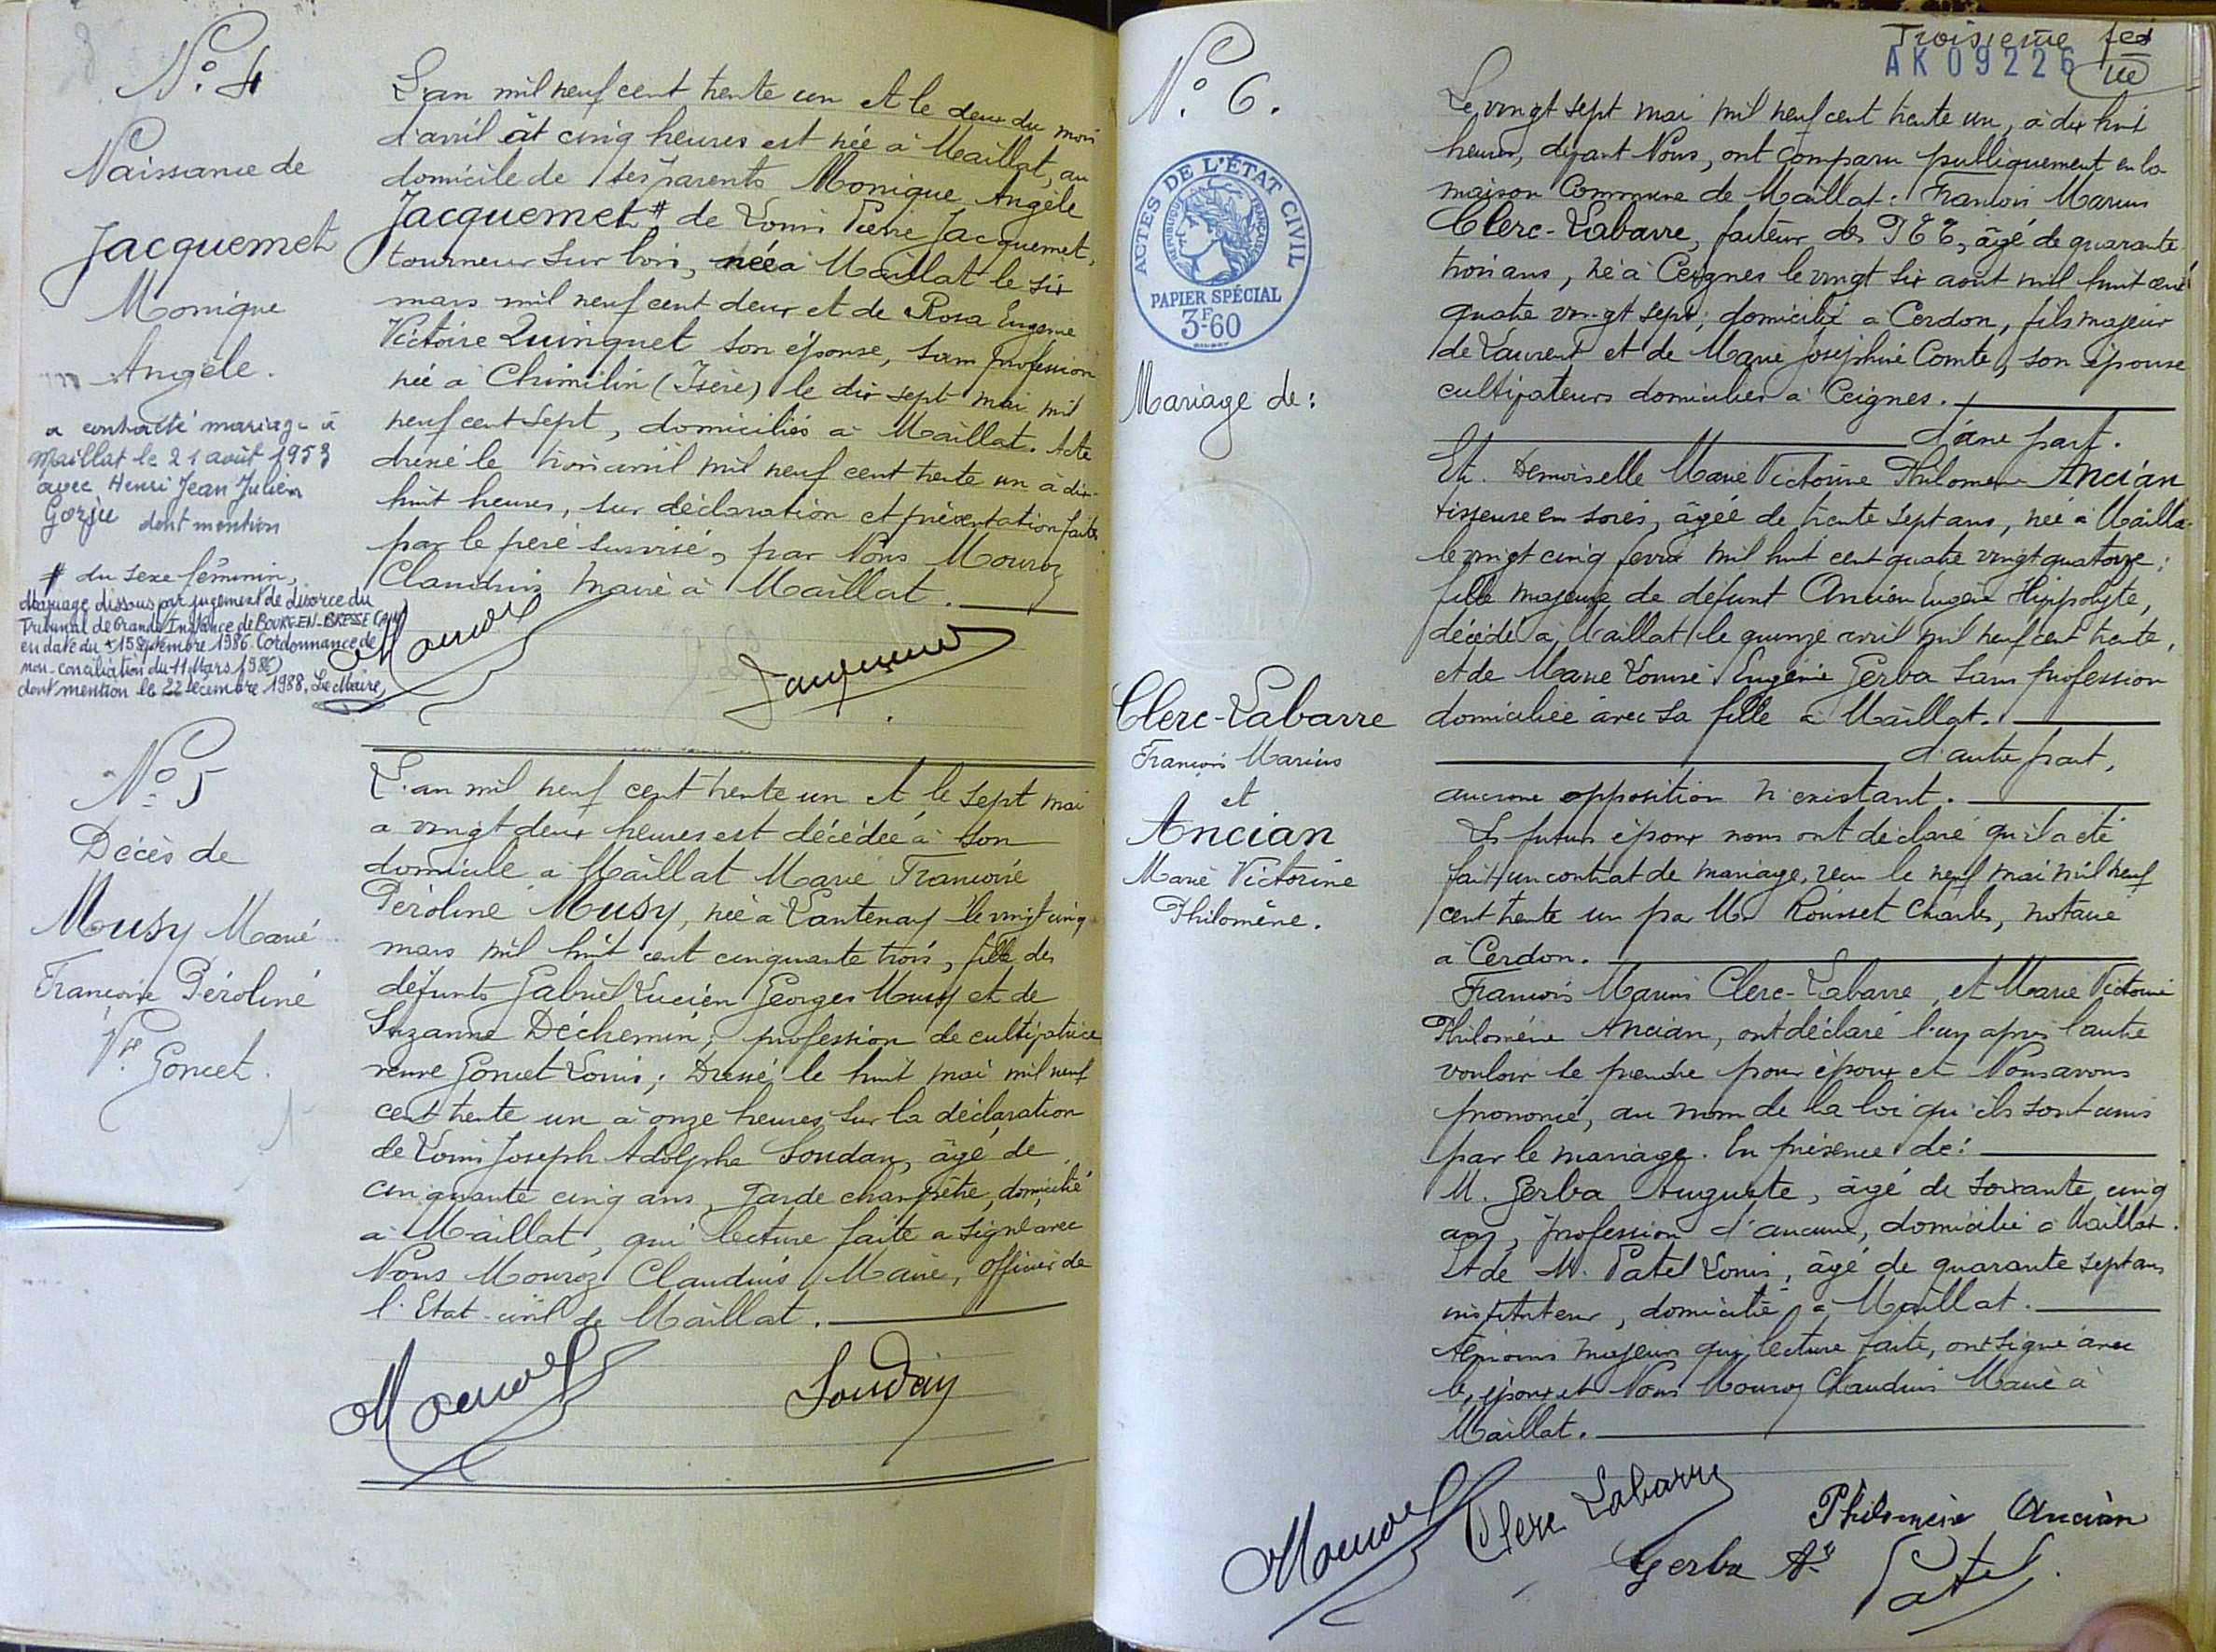 N° 4
Naissance de
Jacquemet
Monique
Angèle.
a contracté mariage à
Maillat le 21 août 1953
avec Henri Jean Julien
Gorju dont mention
# du sexe féminin,
Mariage dissous par jugement de divorce du
Tribunal de Grande Instance de BOURG-EN-BRESSE (Ain)
en date du 15 Septembre 1986 (ordonnance de
non-conciliation du 11 Mars 1986)
dont mention le 22 Décembre 1988. Le Maire,
L'an mil neuf cent trente un et le deux du mois
d'avril à cinq heures est née à Maillat, au
domicile de ses parents Monique Angèle
Jacquemet # de Louis Pierre Jacquemet,
tourneur sur bois, née à Maillat le six
mars mil neuf cent deux et de Rosa Eugenie
Victoire Quinquet son épouse, sans profession
née à Chimilin (Isère) le dix sept mai mil
neuf cent sept, domiciliés à Maillat. Acte
dressé le trois avril mil neuf cent trente un à dix-
huit heures, sur déclaration et présentation faites
par le père susvisé, par Nous Mouroz
Claudius maire à Maillat.
Mouroz
Jacquemet
N° 5
Décès de
Musy Marie
Françoise Péroline
Vve Goncet.
L'an mil neuf cent trente un et le sept mai
a vingt deux heures est décédée à son
domicile à Maillat Marie Francoise
Péroline Musy, née à Lantenay le vingt cinq
mars mil huit cent cinquante trois, fille des
défunts Gabriel Lucien Georges Musy et de
Suzanne Déchemin; profession de cultivatrice
veuve Goncet Louis; Dressé le huit mai mil neuf
cent trente un à onze heures sur la déclaration
de Louis Joseph Adolphe Soudan, âgé de
cinquante cinq ans, garde champêtre, domicilié
à Maillat, qui lecture faite a signé avec
Nous Mouroz Claudius Maire, officier de
l'Etat-civil de Maillat.
Mouroz
Soudan
Troisième
AK 09226
N° 6.
ACTES DE L'ÉTAT CIVIL
RÉPUBLIQUE FRANÇAISE
PAPIER SPÉCIAL
3F60
Mariage de:
Clerc-Labarre
François Marius
et
Ancian
Marie Victorine
Philomène.
Le vingt sept mai mil neuf cent trente un, à dix huit
heures, devant Nous, ont comparu publiquement en la
maison Commune de Maillat: Francois Marius
Clerc-Labarre, facteur des PTT, âgé de quarante
trois ans, né à Ceignes le vingt six aout mil huit cent
quatre vingt sept, domicilié à Cerdon, fils majeur
de Laurent et de Marie Joséphine Comte, son épouse
cultivateurs domiciliés à Ceignes.
d'une part.
Et Demoiselle Marie Victorine Philomene Ancian
tisseuse en soies, âgée de trente sept ans, née à Maillat
le vingt cinq fevrier mil huit cent quatre vingt quatorze;
fille majeure de défunt Ancian Eugène Hippolyte,
décédé à Maillat le quinze avril mil neuf cent trente,
et de Marie Louise Eugénie Gerba sans profession
domiciliée avec sa fille à Maillat.
d'autre part,
aucune opposition n'existant.
Les futurs époux nous ont déclaré qu'il a été
fait un contrat de mariage, reçu le neuf mai mil neuf
cent trente un par Me Rousset Charles, notaire
à Cerdon.
Francois Marius Clerc-Labarre, et Marie Victorine
Philomène Ancian, ont déclaré l'un après l'autre
vouloir se prendre pour époux et Nous avons
prononcé, au nom de la loi qu'ils sont unis
par le mariage. En présence de:
M. Gerba Auguste, âgé de soixante cinq
ans, profession d'aucune, domicilié à Maillat.
Et de M. Patel Louis, âgé de quarante sept ans
instituteur, domicilié à Maillat.
témoins majeurs qui, lecture faite, ont signé avec
les époux et Nous Mouroz Claudius Maire à
Maillat.
Mouroz
Clerc Labarre
Philomène Ancian
Gerba Ate
Patel